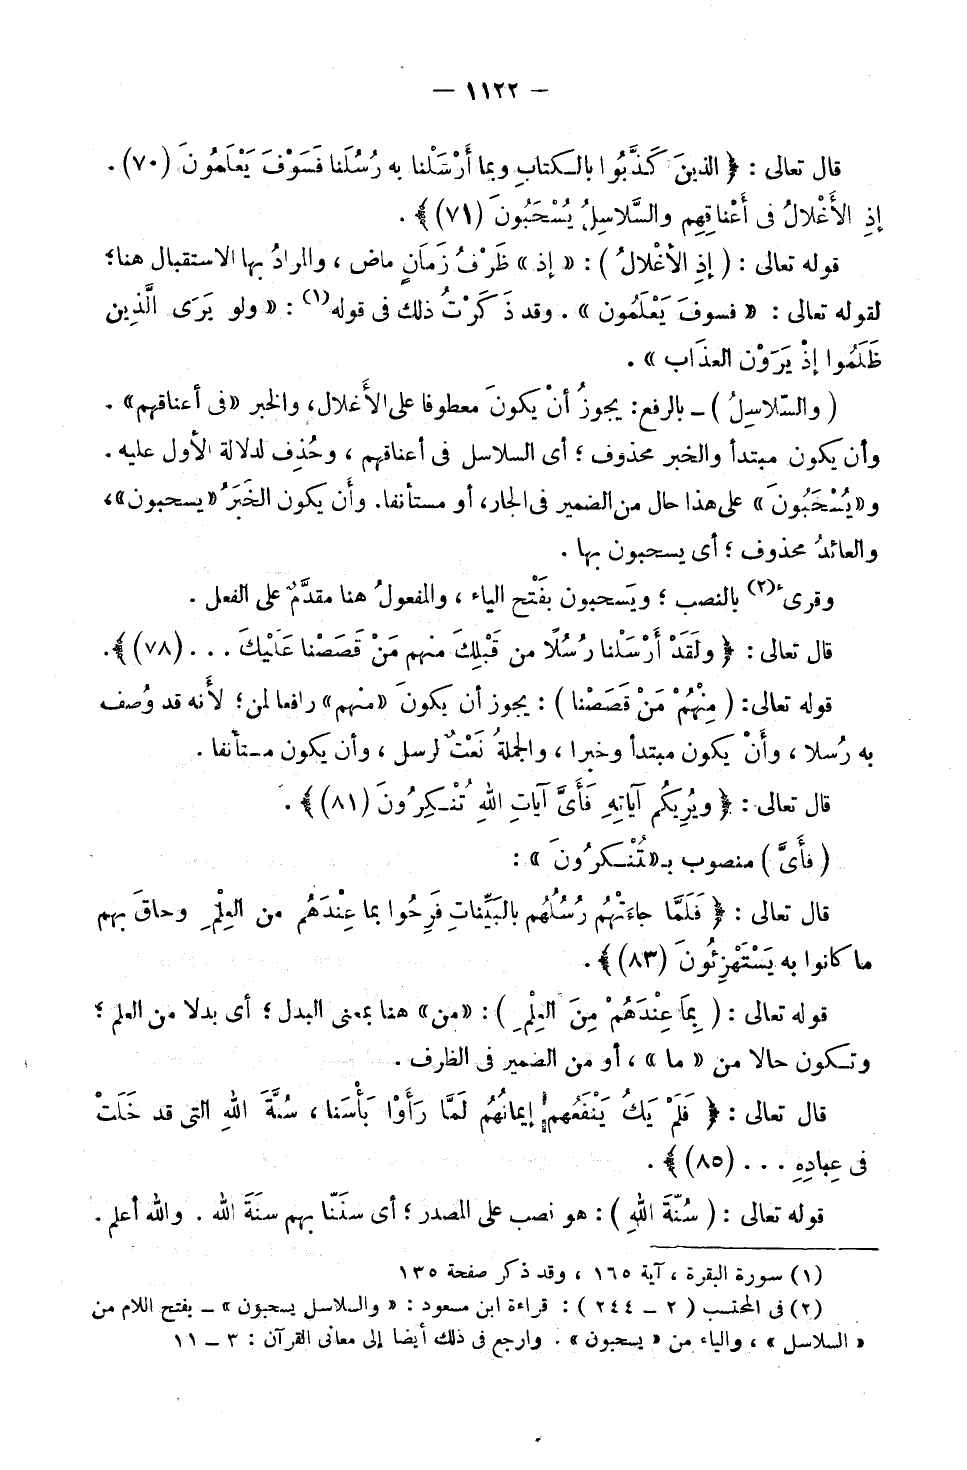 — ١١٢٢ —
قال تعالى : ﴿ الذينَ كَذَّبُوا بالـكتابِ وبما أَرْسَلْنا به رُسُلَنا فَسَوْفَ يَعْلَمُونَ (٧٠) .
إذِ الأَغْلالُ فى أَعْناقِهِم والسَّلاسِلُ يُسْحَبُونَ (٧١) ﴾ .
قوله تعالى : ( إذِ الأغْلالُ ) : « إذ » ظَرْفُ زَمَانٍ ماض ، والمرادُ بها الاستقبال هنا ؛
لقوله تعالى : « فسوفَ يَعْلَمُون » . وقد ذَكَرْتُ ذلك فى قوله(١) : « ولو يَرَى الَّذِين
ظَلَمُوا إذْ يَرَوْن العذَاب » .
( والسّلاسِلُ ) – بالرفع : يجوزُ أنْ يكونَ معطوفا على الأَغلال، والخبر «فى أعناقهم» .
وأن يكون مبتدأ والخبر محذوف ؛ أى السلاسل فى أعناقهم ، وحُذِف لدلالة الأول عليه .
و«يُسْحَبُونَ » على هذا حال من الضمير فى الجار، أو مستأنفا. وأن يكون الخَبَرُ «يسحبون»،
والعائدُ محذوف ؛ أى يسحبون بها .
وقرىء(٢) بالنصب ؛ ويَسحبون بفَتْح الياء ، والمفعولُ هنا مقدَّمٌ على الفعل .
قال تعالى : ﴿ ولَقَدْ أَرْسَلْنا رُسُلًا من قَبْلِكَ منهم مَنْ قَصَصْنا عَلَيْكَ . . . (٧٨) ﴾.
قوله تعالى: ( مِنْهُمْ مَنْ قَصَصْنا ) : يجوز أن يكونَ «منهم» رافعا لمن ؛ لأَنه قد وُصف
به رُسلا ، وأَنْ يكون مبتدأ وخبرا ، والجملةُ نَعْتٌ لرسل ، وأن يكون مستأنفا .
قال تعالى : ﴿ ويُرِيكُم آيَاتِهِ فَأَىَّ آيَاتِ اللهِ تُنْـكِرُونَ (٨١) ﴾ .
( فأَىَّ ) منصوب بـ«تُنْـكرُونَ » :
قال تعالى : ﴿ فَلَمَّا جاءَتْهُم رُسُلُهُم بالبَيِّناتِ فَرِحُوا بما عِنْدَهُم من العِلْمِ وحاقَ بهم
ما كانوا به يَسْتَهْزِئُونَ (٨٣) ﴾ .
قوله تعالى : ( بِمَا عِنْدَهُمْ مِنَ العِلْمِ ) : «من» هنا بمعنى البدل ؛ أى بدلا من العلم ؛
وتـكون حالا من « ما » ، أو من الضمير فى الظرف .
قال تعالى : ﴿ فَلَمْ يَكُ يَنْفَعُهم إيمانُهُم لَمَّا رَأَوْا بَأْسَنا ، سُنَّةَ اللهِ التى قد خَلَتْ
فى عِبادِهِ . . . (٨٥) ﴾ .
قوله تعالى : ( سُنّةَ اللهِ ) : هو نصب على المصدر ؛ أى سنَنّا بهم سنةَ الله . والله أعلم .
(١) سورة البقرة ، آية ١٦٥ ، وقد ذكر صفحة ١٣٥
(٢) فى المحتسب ( ٢ – ٢٤٤ ) : قراءة ابن مسعود : « والسلاسل يسحبون » – بفتح اللام من
« السلاسل » ، والياء من « يسحبون » . وارجع فى ذلك أيضا إلى معانى القرآن : ٣ – ١١